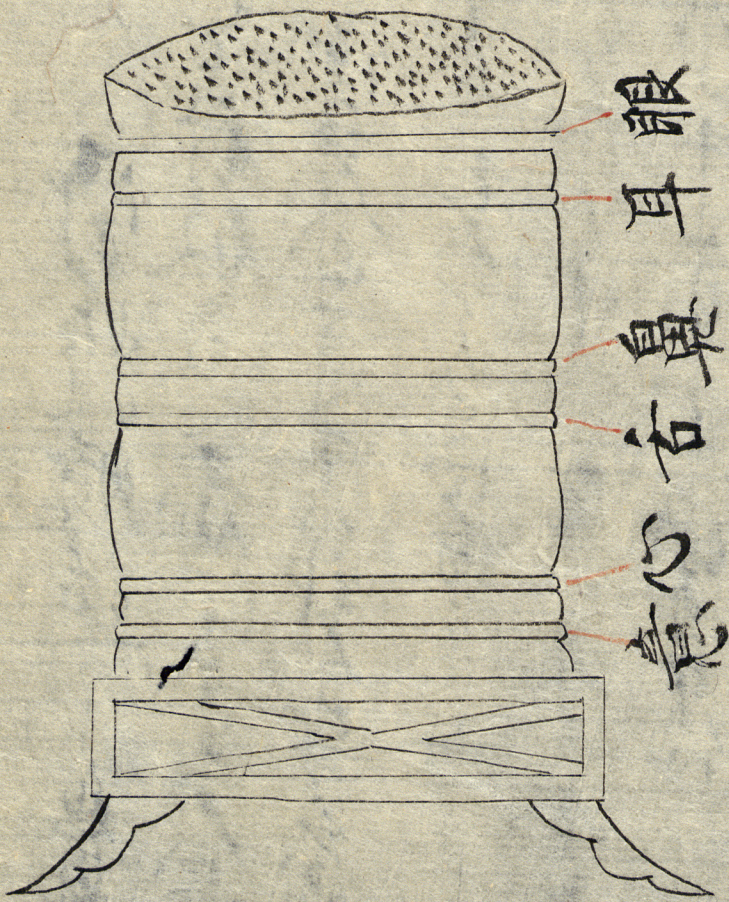 眼
耳
鼻
舌
心
意